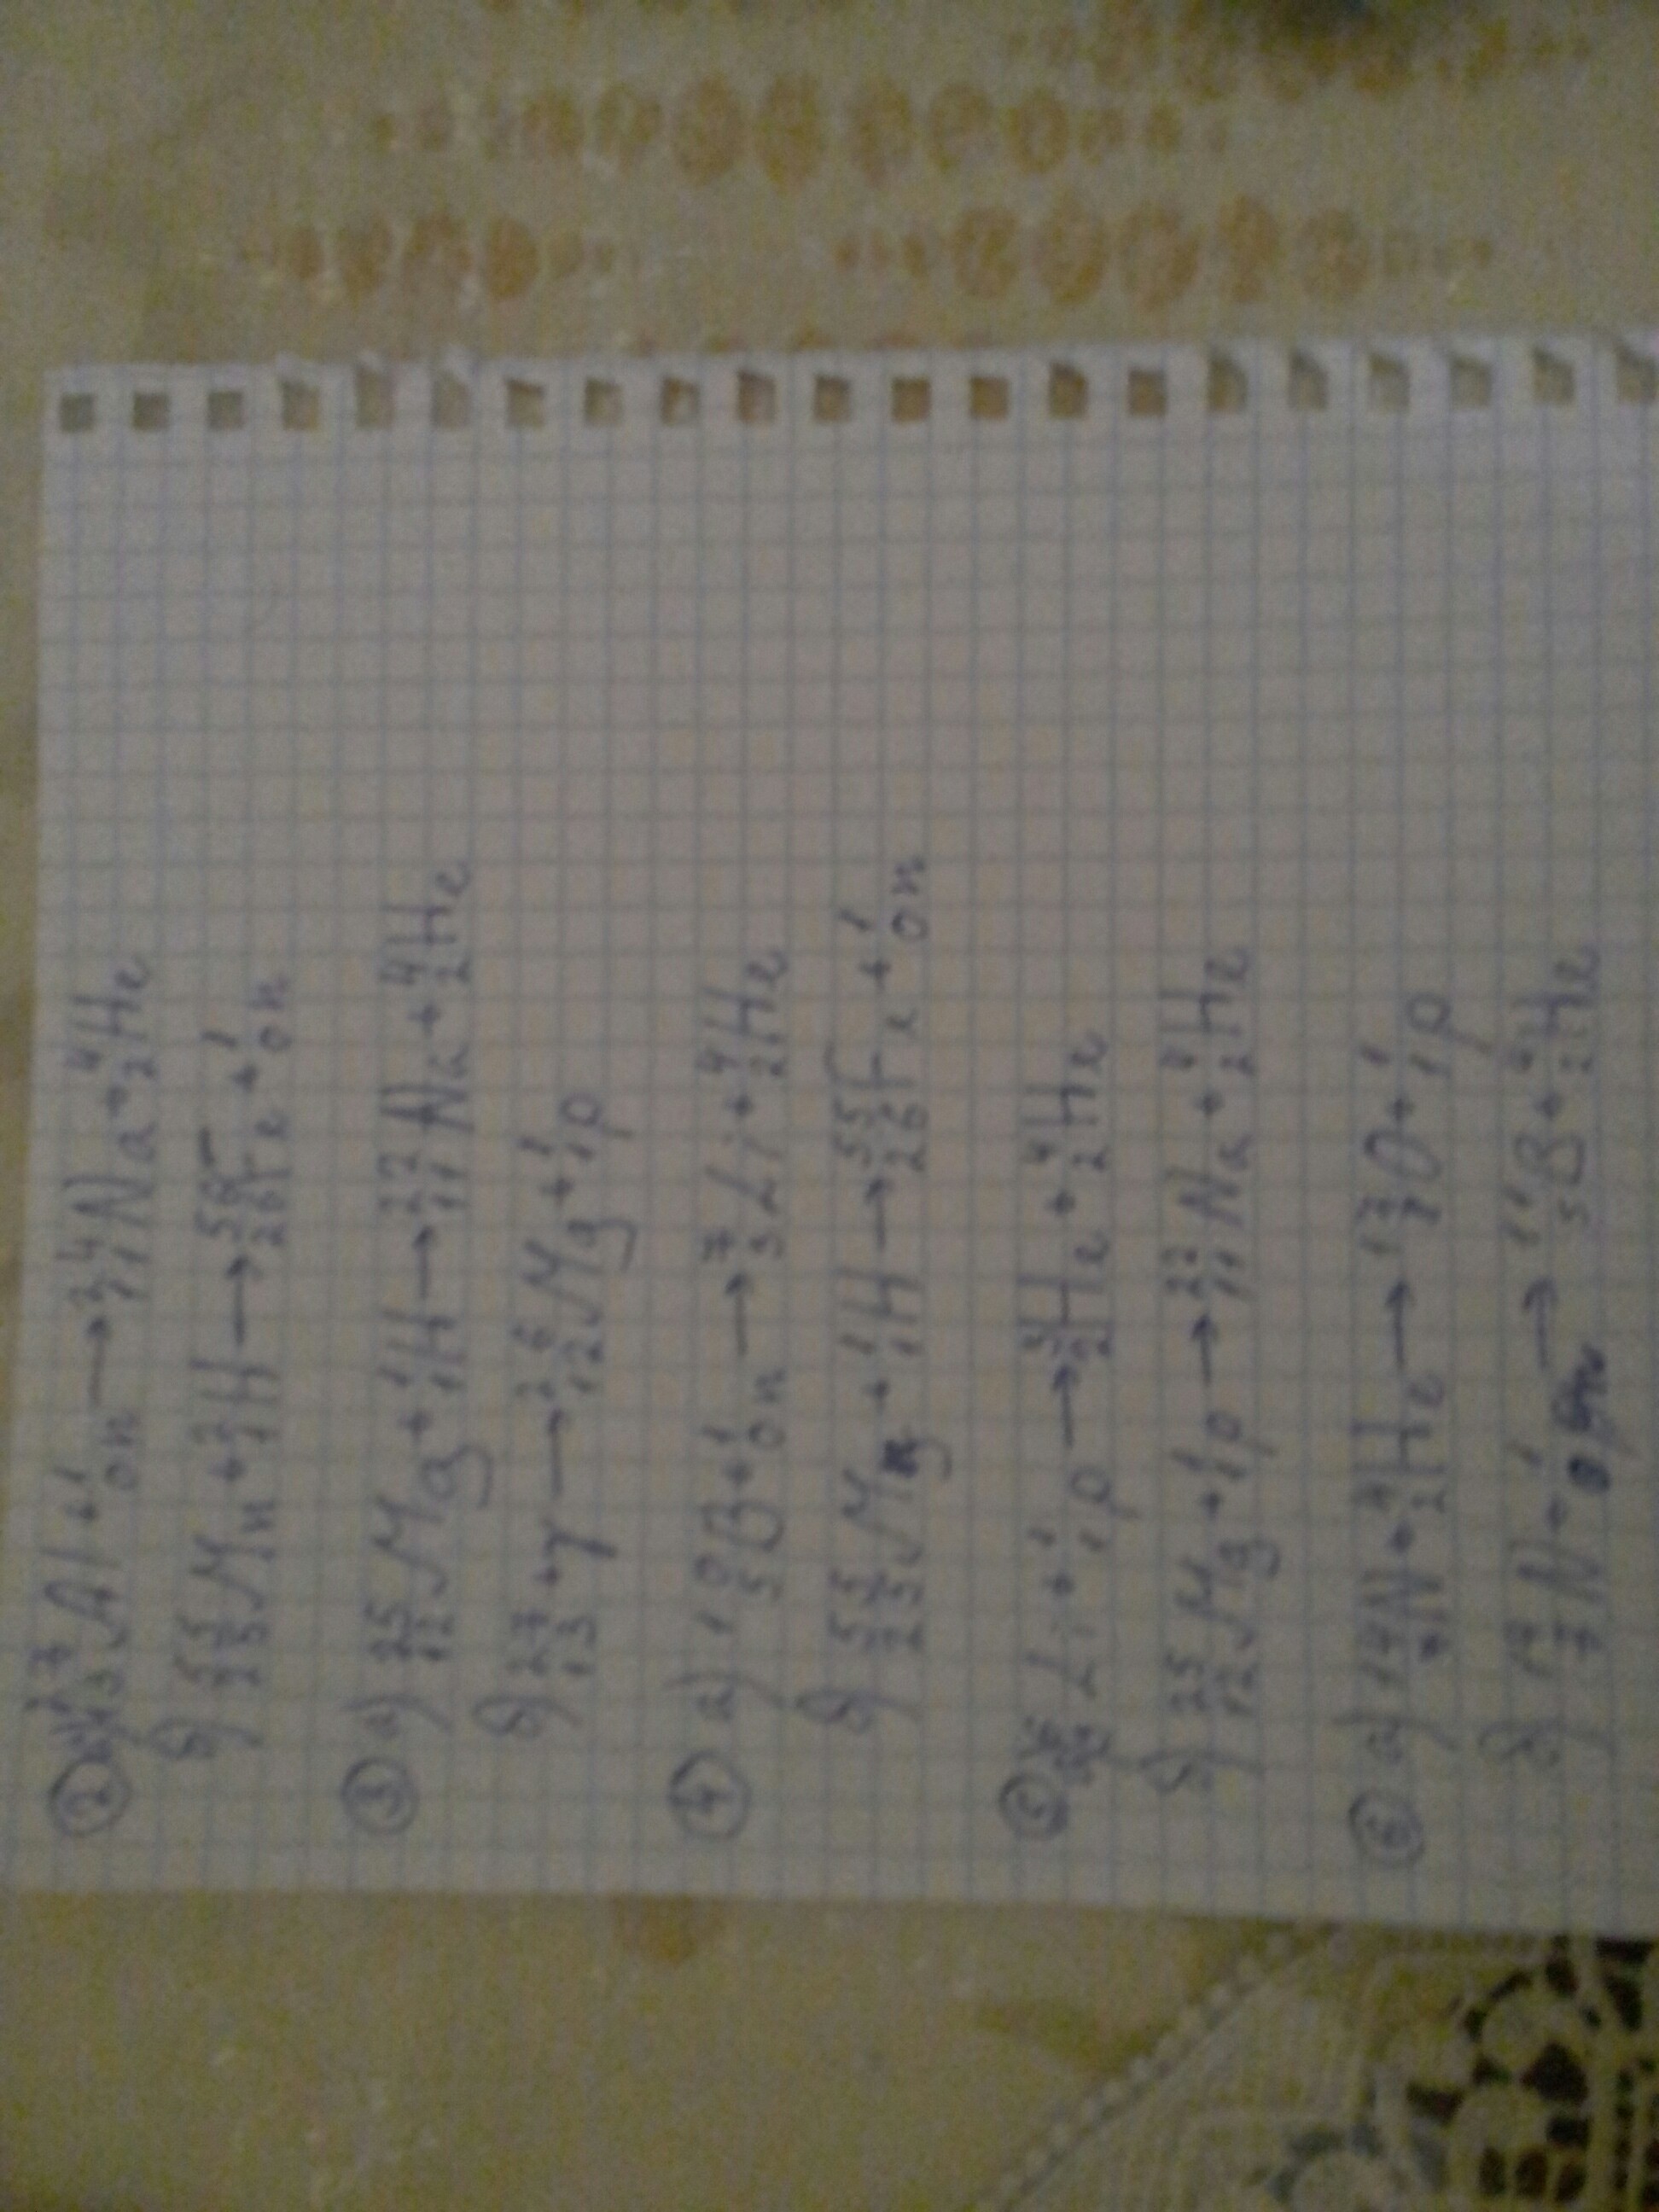 ② а) ²⁷₁₃Al + ¹₀n → ²⁴₁₁Na + ⁴₂He
б) ⁵⁵₂₅Mn + ²₁H → ⁵⁶₂₆Fe + ¹₀n
③ а) ²⁵₁₂Mg + ¹₁H → ²²₁₁Na + ⁴₂He
б) ²⁷₁₃ + γ → ²⁶₁₂Mg + ¹₁p
④ а) ¹⁰₅B + ¹₀n → ⁷₃Li + ⁴₂He
б) ⁵⁵₂₅Mn + ¹₁H → ⁵⁵₂₆Fe + ¹₀n
⑤ Li + ¹₁p → ⁴₂He + ⁴₂He
б) ²⁵₁₂Mg + ¹₁p → ²²₁₁Na + ⁴₂He
⑥ а) ¹⁴₇N + ⁴₂He → ¹⁷₈O + ¹₁p
б) ¹⁴₇N + ¹₀n → ¹¹₅B + ⁴₂He